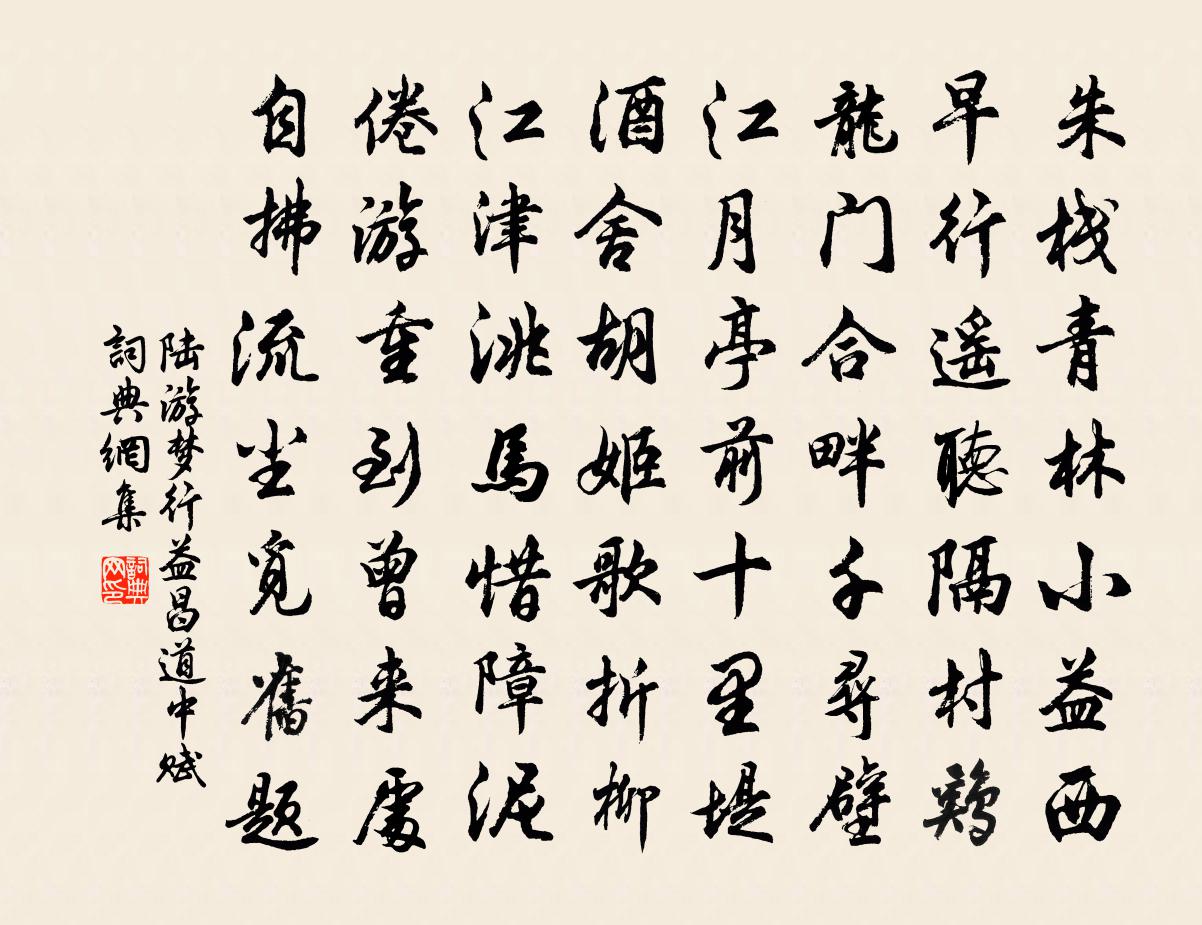 朱栈青林小益西
早行遥聽隔村鷄
龍门合畔千尋壁
江月亭前十里堤
酒舍胡姬歌折柳
江津洮馬惜障泥
倦游重到曾来處
自拂流尘觅舊题
陆游梦行益昌道中赋
詞典網集
詞典网印